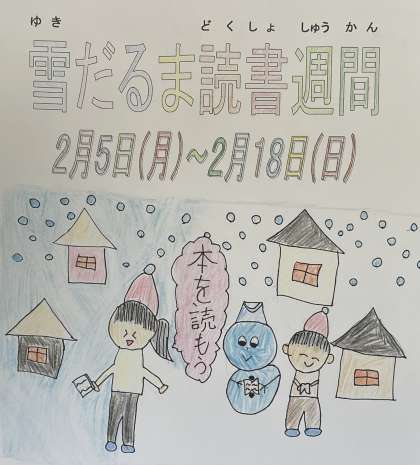 ゆき どくしょ しゅうかん
雪だるま読書週間
2月5日(月)~2月18日(日)
本を読もう